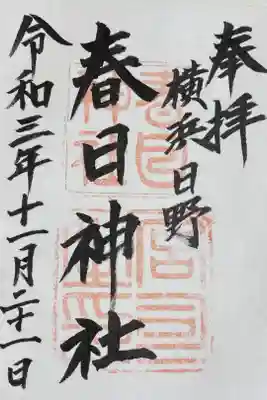 奉拝
横浜日野
春日神社
令和三年十一月二十一日